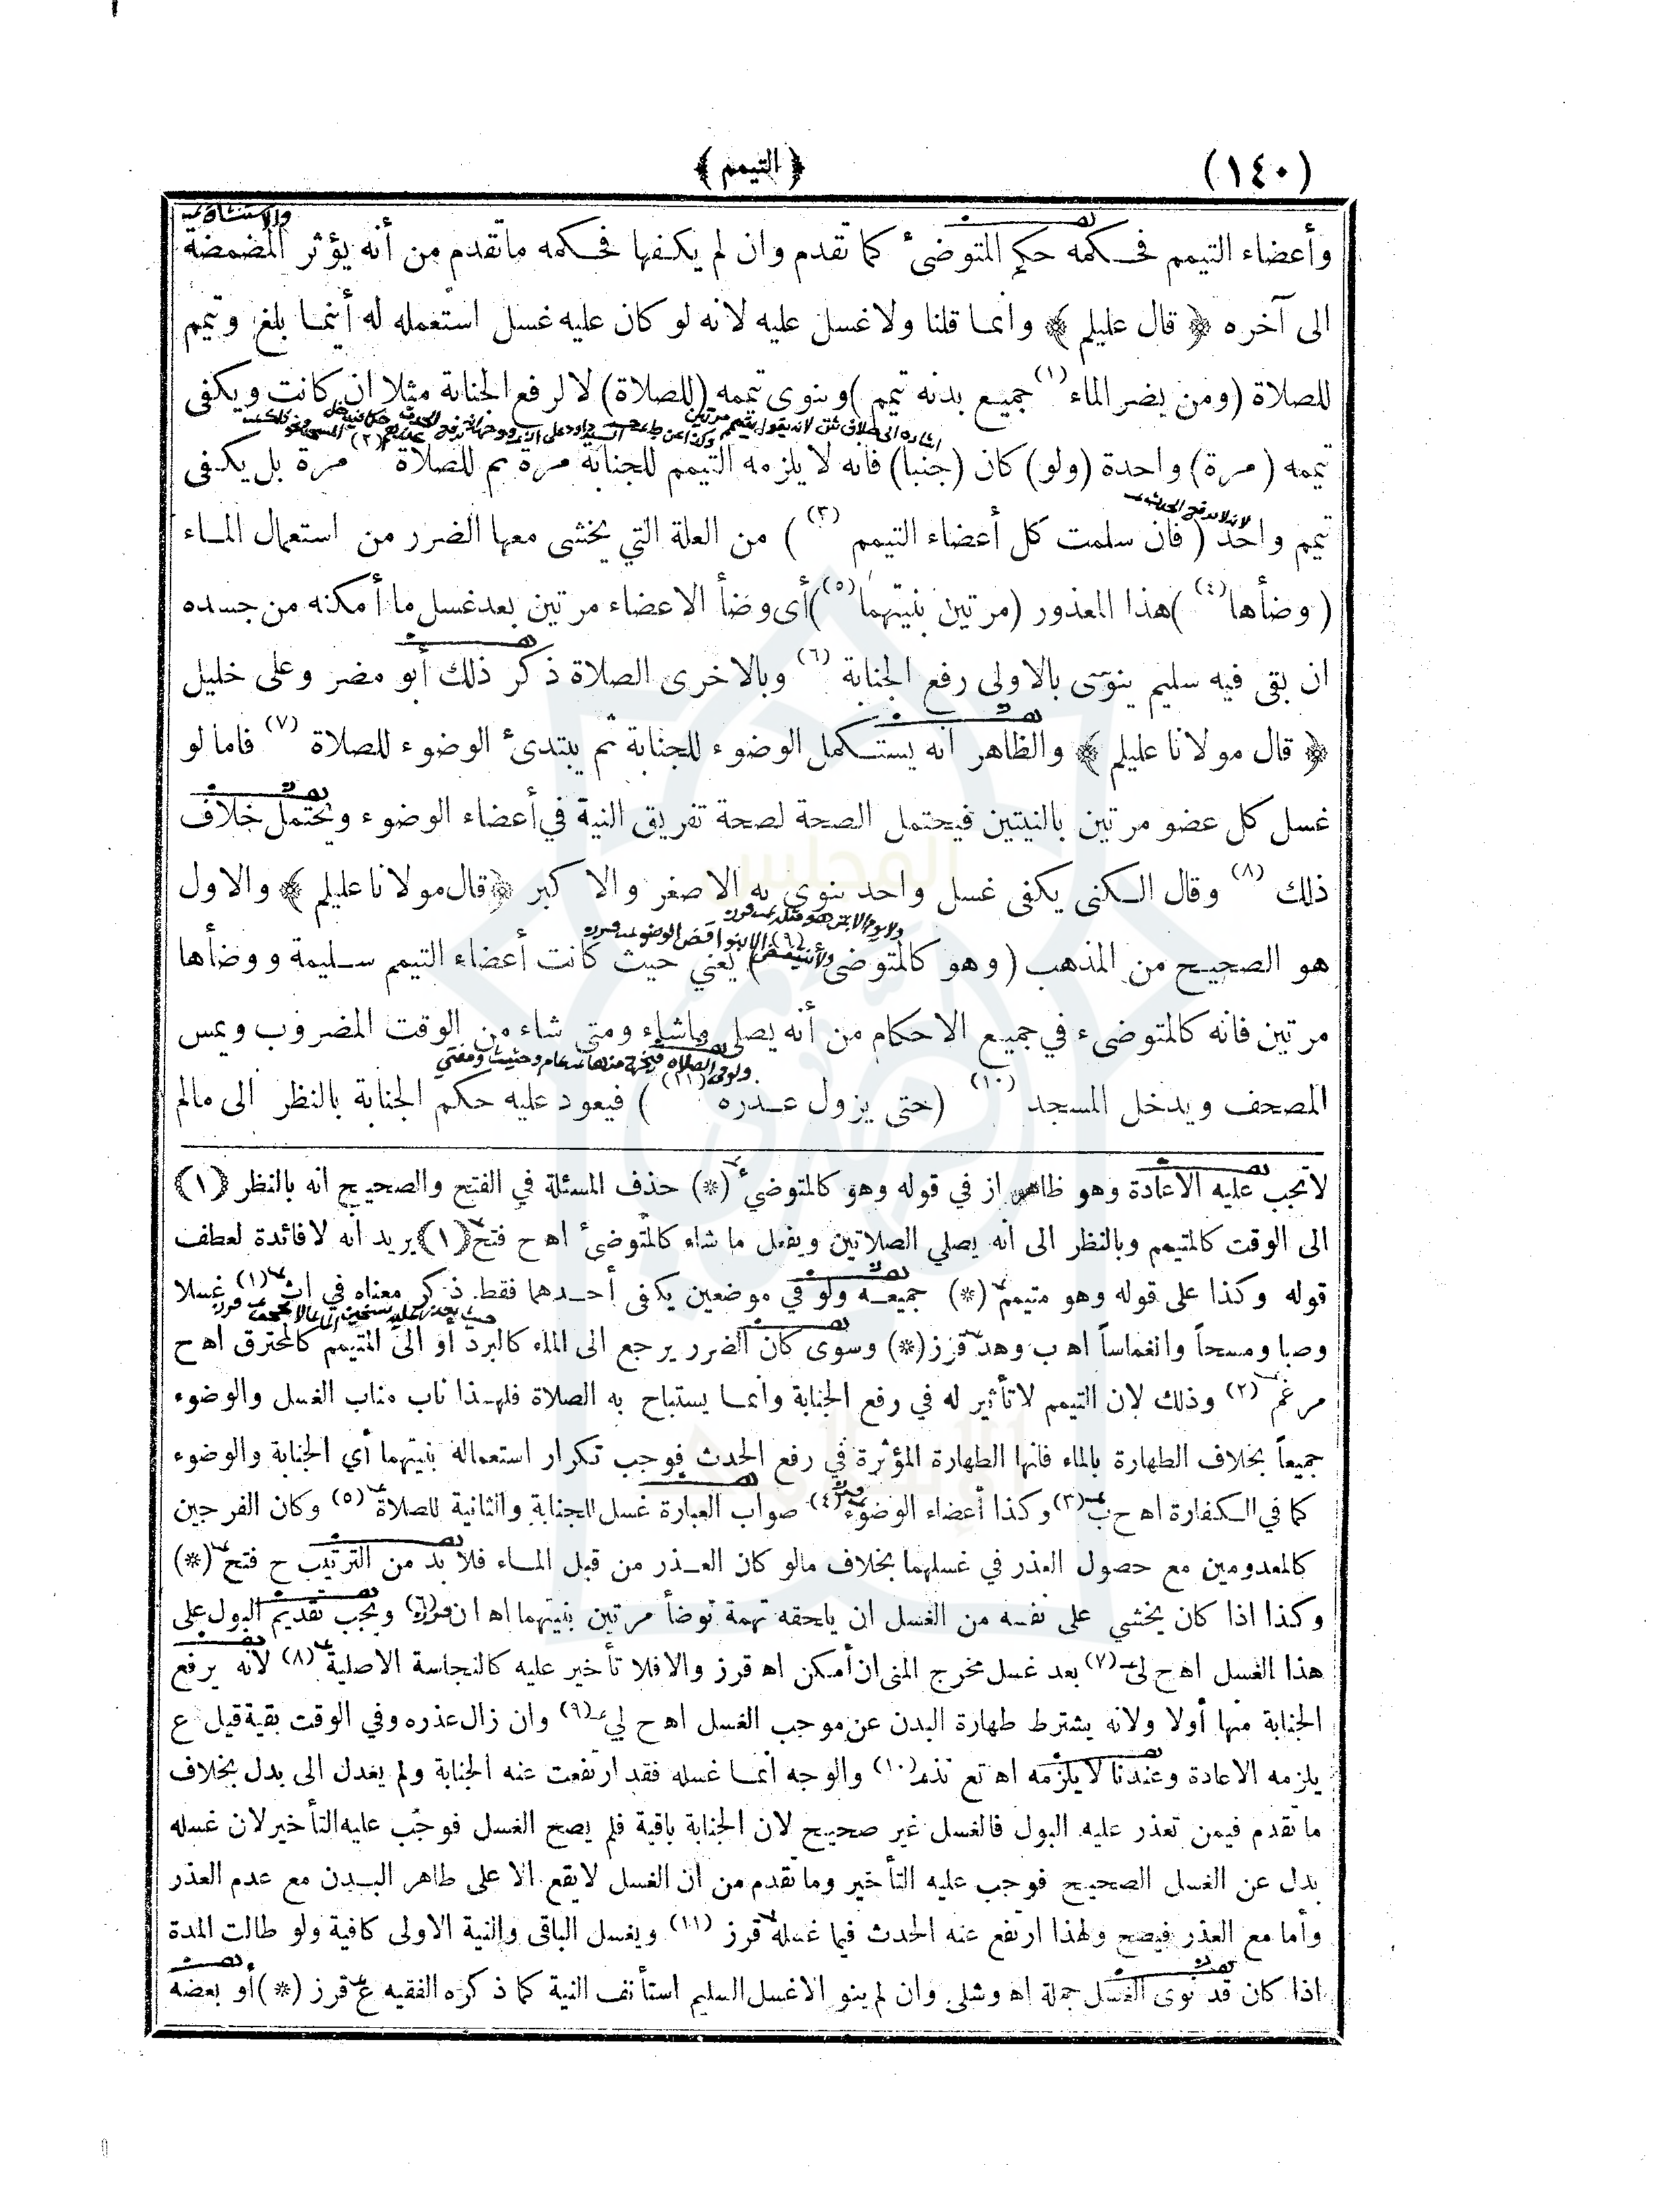 (١٤٠)
﴿ التيمم ﴾
وأعضاء التيمم فحكمه حكم المتوضئ كما تقدم وان لم يكفها فحكمه ماتقدم من أنه يؤثر المضمضة
والاستنشاق
الى آخره ﴿ قال عليلم ﴾ وانما قلنا ولا غسل عليه لانه لو كان عليه غسل استعمله له أينما بلغ ويتمم
للصلاة (ومن يضر الماء (١) جميع بدنه تيمم )وينوى تيممه (للصلاة) لا لرفع الجنابة مثلا ان كانت ويكفى
تيممه (مرة) واحدة (ولو) كان (جنبا) فانه لا يلزمه التيمم للجنابة مرة ثم للصلاة (٢) مرة بل يكفى
لانه لا يرفع الحدث
تيمم واحد (فان سلمت كل أعضاء التيمم (٣) ) من العلة التي يخشى معها الضرر من استعمال الماء
(وضأها (٤) )هذا المعذور (مرتين بنيتهما (٥) )أى وضأ الاعضاء مرتين بعد غسل ما أمكنه من جسده
ان بقى فيه سليم ينوى بالاولى رفع الجنابة (٦) وبالاخرى الصلاة ذكر ذلك أبو مضر وعلى خليل
﴿ قال مولانا عليلم ﴾ والظاهر أنه يستكمل الوضوء للجنابة ثم يبتدئ الوضوء للصلاة (٧) فاما لو
غسل كل عضو مرتين بالنيتين فيحتمل الصحة لصحة تفريق النية في أعضاء الوضوء ويحتمل خلاف
ذلك (٨) وقال الكنى يكفى غسل واحد ينوى به الاصغر والاكبر ﴿قال مولانا عليلم ﴾ والاول
هو الصحيح من المذهب (وهو كالمتوضئ (٩) ) يعني حيث كانت أعضاء التيمم سليمة ووضأها
مرتين فانه كالمتوضىء في جميع الاحكام من أنه يصلى ماشاء ومتى شاء من الوقت المضروب ويمس
المصحف ويدخل المسجد (١٠) (حتى يزول عذره (١١) ) فيعود عليه حكم الجنابة بالنظر الى مالم
لاتجب عليه الاعادة وهو ظاهر از في قوله وهو كالمتوضئ (*) حذف المسئلة في الفتح والصحيح انه بالنظر (١)
الى الوقت كالمتيمم وبالنظر الى انه يصلي الصلاتين ويفعل ما شاء كالمتوضئ اه ح فتح (١) يريد أنه لا فائدة لعطف
قوله وكذا على قوله وهو متيمم (*) جميعه ولو في موضعين يكفى أحدهما فقط. ذكر معناه في اث (١) غسلا
وصبا ومسحاً وانغماساً اه ب وهد قرز (*) وسوى كان الضرر يرجع الى الماء كالبرد او الى المتيمم كالمحترق اه ح
مرغم (٢) وذلك لان التيمم لاتأثير له في رفع الجنابة وانما يستباح به الصلاة فلهذا ناب مناب الغسل والوضوء
جميعاً بخلاف الطهارة بالماء فانها الطهارة المؤثرة في رفع الحدث فوجب تكرار استعماله بنيتهما أي الجنابة والوضوء
كما في الكفارة اه ح ب (٣) وكذا أعضاء الوضوء (٤) صواب العبارة غسل للجنابة والثانية للصلاة (٥) وكان الفرجين
كالمعدومين مع حصول العذر في غسلهما بخلاف مالو كان العذر من قبل الماء فلا بد من الترتيب ح فتح (*)
وكذا اذا كان يخشي على نفسه من الغسل ان ياحقه تهمة توضأ مرتين بنيتهما اه ان قرز (٦) ويجب تقديم البول على
هذا الغسل اه ح لى (٧) بعد غسل مخرج المنى ان أمكن اه قرز والا فلا تأخير عليه كالنجاسة الاصلية (٨) لانه يرفع
الجنابة منها أولا ولانه يشترط طهارة البدن عن موجب الغسل اه ح لي (٩) وان زال عذره وفي الوقت بقية قيل ع
يلزمه الاعادة وعندنا لا يلزمه اه تع نذه (١٠) والوجه انما غسله فقد ارتفعت عنه الجنابة ولم يعدل الى بدل بخلاف
ما تقدم فيمن تعذر عليه البول فالغسل غير صحيح لان الجنابة باقية فلم يصح الغسل فوجب عليه التأخير لان غسله
بدل عن الغسل الصحيح فوجب عليه التأخير وما تقدم من ان الغسل لا يقع الا على طاهر البدن مع عدم العذر
وأما مع العذر فيصح ولهذا ارتفع عنه الحدث فيما غسله قرز (١١) ويغسل الباقى والنية الاولى كافية ولو طالت المدة
اذا كان قد نوى الغسل جملة اه وشلى وان لم ينو الا غسل السليم استأنف النية كما ذكره الفقيه ع قرز (*) أو بعضه